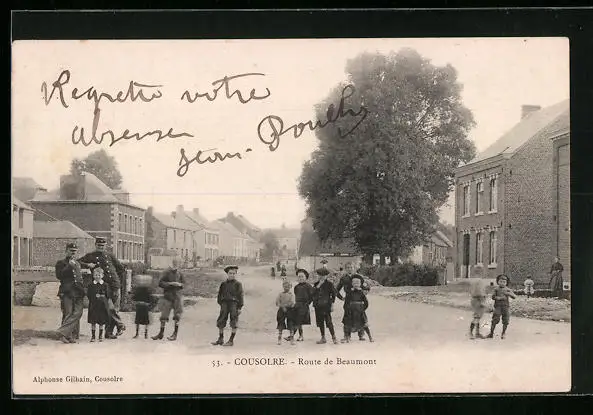 Regrette votre
absence
Jean. Pouilly
53. - COUSOLRE. - Route de Beaumont
Alphonse Gilbain, Cousolre